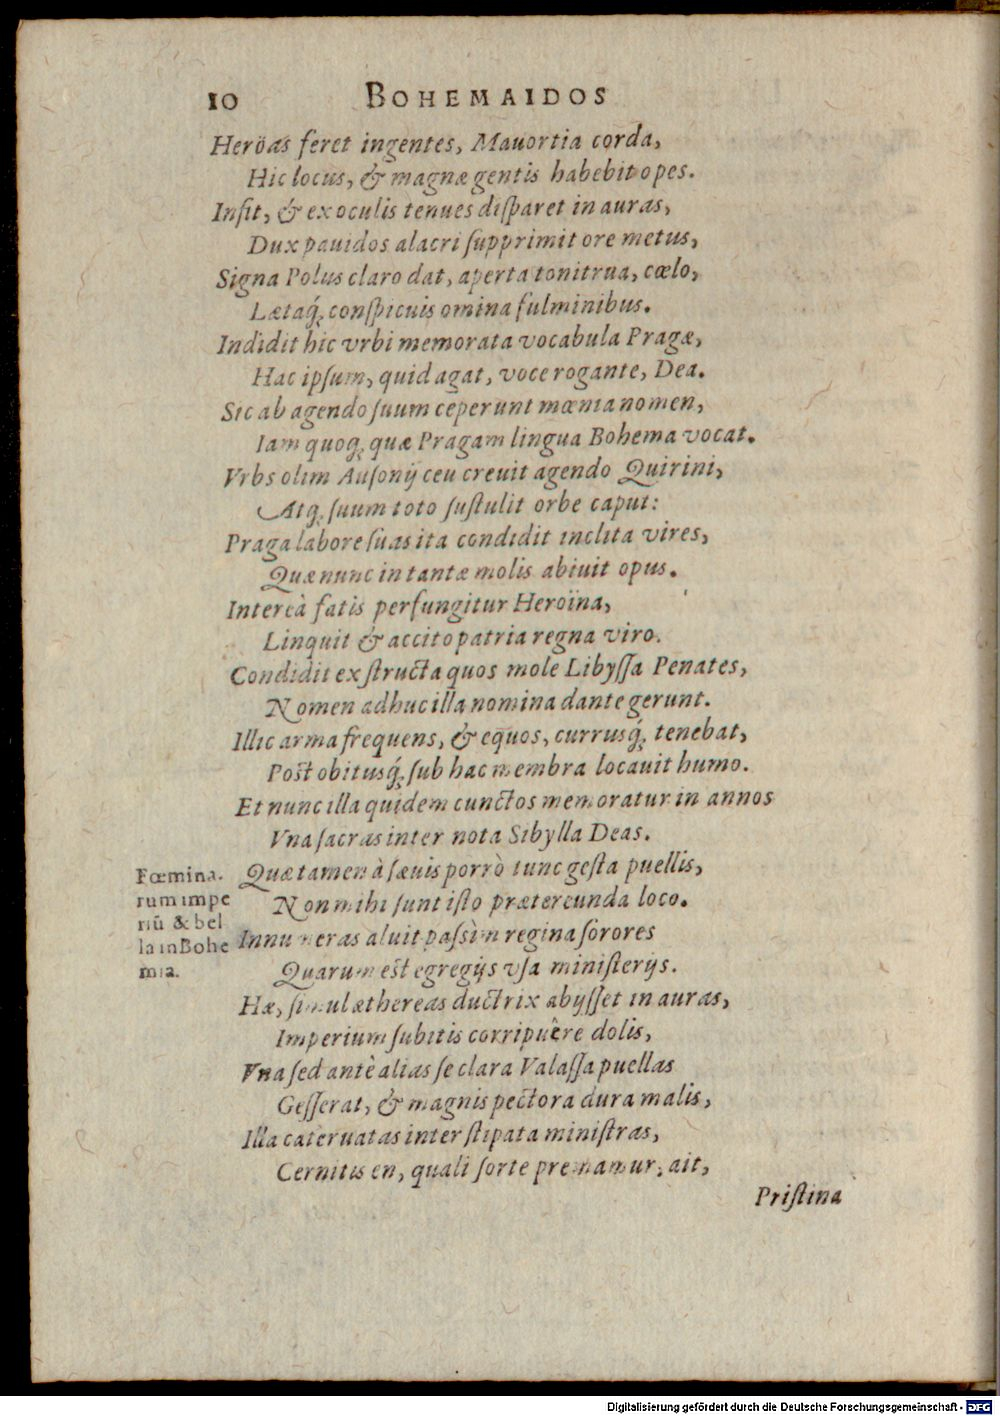 10 BOHEMAIDOS
Heröas feret ingentes, Mauortia corda,
Hic locus, & magnæ gentis habebit opes.
Insit, & ex oculis tenues disparet in auras,
Dux pauidos alacri supprimit ore metus,
Signa Polus claro dat, aperta tonitrua, cœlo,
Lætaq́; conspicuis omina fulminibus.
Indidit hic vrbi memorata vocabula Pragæ,
Hac ipsum, quid agat, voce rogante, Dea.
Sic ab agendo suum ceperunt mœnia nomen,
Iam quoq; quæ Pragam lingua Bohema vocat.
Vrbs olim Ausonij ceu creuit agendo Quirini,
Atq; suum toto sustulit orbe caput:
Praga labore suas ita condidit inclita vires,
Quæ nunc in tantæ molis abiuit opus.
Intereà fatis perfungitur Heroïna,
Linquit & accito patria regna viro.
Condidit exstructa quos mole Libyssa Penates,
Nomen adhuc illa nomina dante gerunt.
Illic arma frequens, & equos, currusq́; tenebat,
Post obitusq́; sub hac membra locauit humo.
Et nunc illa quidem cunctos memoratur in annos
Vna sacras inter nota Sibylla Deas.
Quæ tamen à sæuis porrò tunc gesta puellis,
Non mihi sunt isto prætereunda loco.
Innumeras aluit passìm regina sorores
Quarum est egregijs vsa ministerijs.
Hæ, simul æthereas ductrix abysset in auras,
Imperium subitis corripuêre dolis,
Vna sed antè alias se clara Valassa puellas
Gesserat, & magnis pectora dura malis,
Illa cateruatas inter stipata ministras,
Cernitis en, quali sorte premamur, ait,
Pristina
Fœmina-
rum impe
riū & bel
la in Bohe
mia.
Digitalisierung gefördert durch die Deutsche Forschungsgemeinschaft - DFG